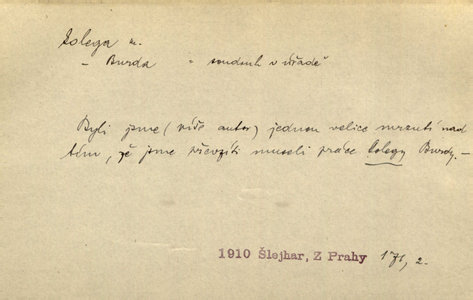 kolega m.
– Burda = soudruh v úřadě
Byli jsme (píše autor) jednou velice mrzutí nad
tím, že jsme převzíti museli práce kolegy Burdy.–
1910 Šlejhar, Z Prahy 171, 2.